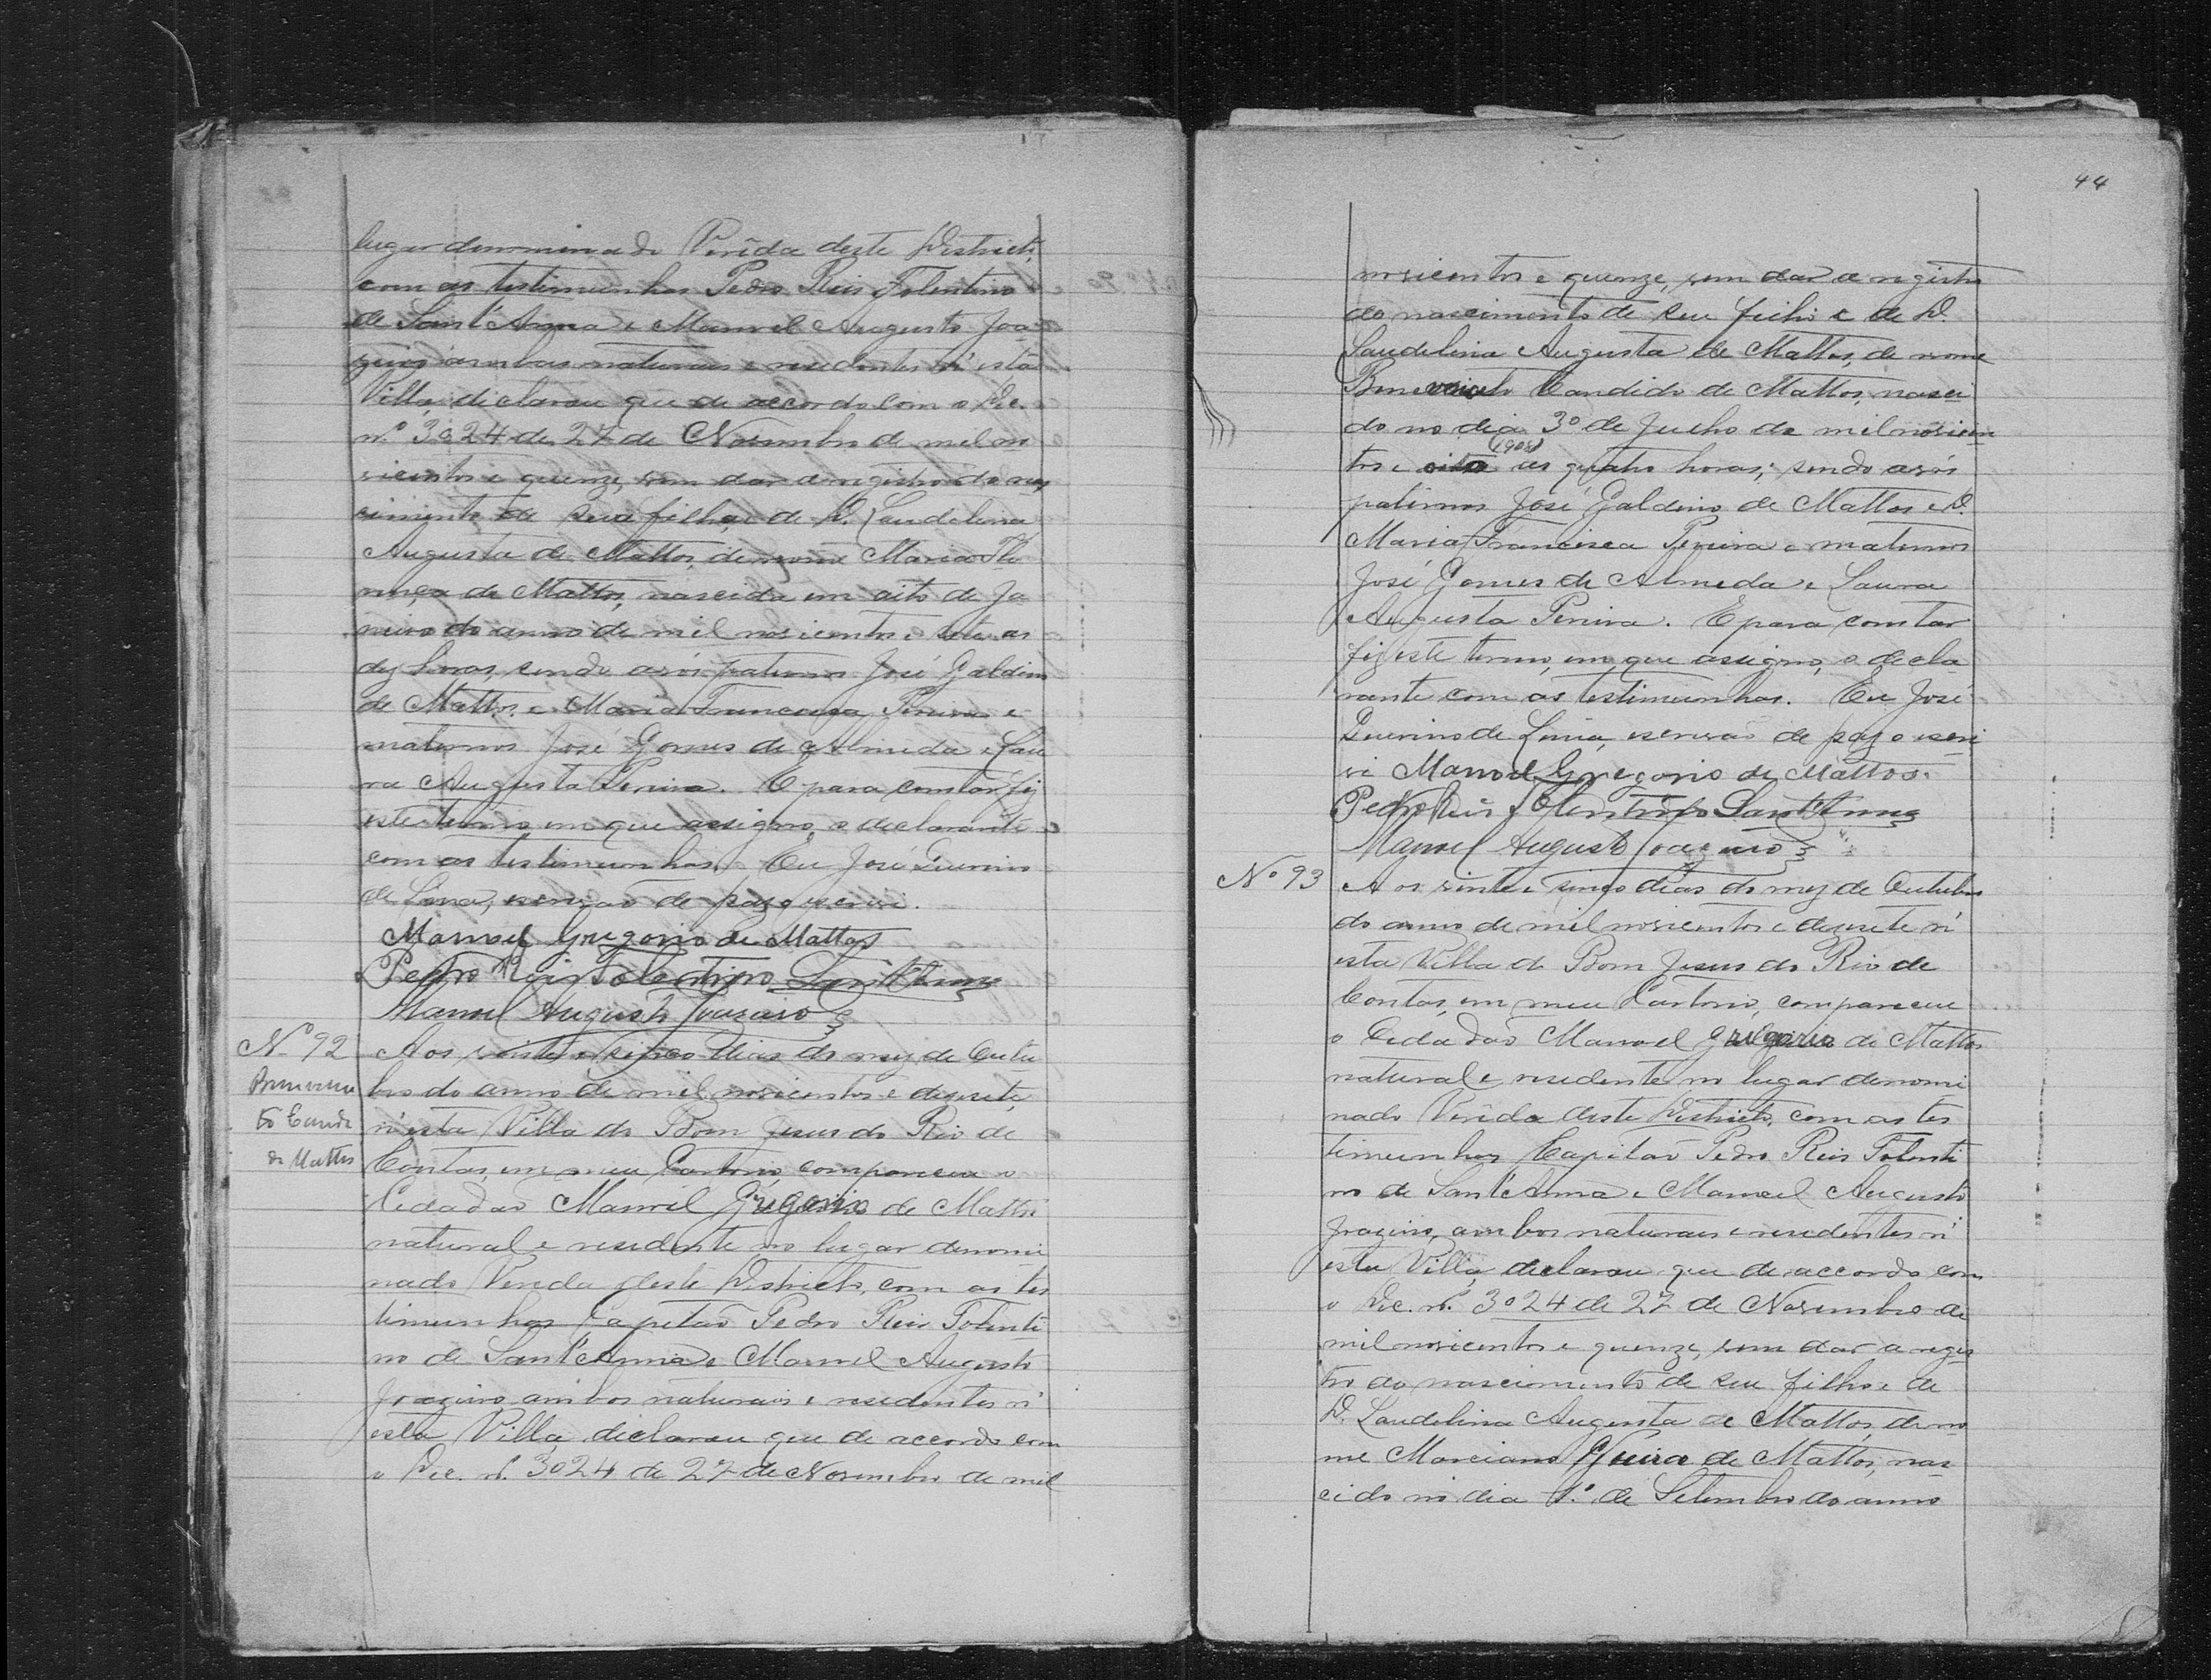 lugar denominado Verêda deste Districto,
com as testimunhas Pedro Reis Tolentino
de Sant'Anna e Manoel Augusto Joa
zeiro ambos naturais e residentes n'esta
Villa, declarou que de accordo com o Dec.
nº 3024 de 27 de Novembro de mil no
vicentos e quenze, vem dar a registro do nas
cimento de sua filha, e de D. Laudelina
Augusta de Mattos, de nome Maria Flo
rença de Mattos, nascida em oito de Ja
neiro do anno de mil novicentos e sete as
dez horas, sendo avós paternos José Galdino
de Mattos e Maria Francisca Pereira e
maternos José Gomes de Almeda e Lau
ra Augusta Pereira. E para constar fiz
este termo em que assigno, o declarante
com as testimunhas. Eu José Querino
de Lima, escrivaõ de paz o escrevi.
Manoel Gregorio de Mattos
Pedro Reis Tolentino Sant'Anna
Manoel Augusto Joazeiro
Nº 92 Aos vinte e sinco dias do mez de Outu
bro do anno de mil novicentos e dezesete,
n'esta Villa do Bom Jesus do Rio de
Contas, em meu Cartorio, compareceu o
Cedadaõ Manoel Gregorio de Mattos
natural e residente no lugar denomi
nado Verêda deste Districto, com as tes
timunhas Capitaõ Pedro Reis Tolenti
no de Sant'Anna e Manoel Augusto
Joazeiro, ambos naturais e residentes n'
esta Villa, declarou que de accordo com
o Dec. nº. 3024 de 27 de Novembro de mil
44
novicentos e quenze, vem dar a registro
do nascimento de seu filho e de D.
Laudelina Augusta de Mattos, de nome
Candido de Mattos, nasci
do no dia 3º de Julho de mil novicen
tos e oito (908) as quatro horas; sendo avós
paternos José Galdino de Mattos e D.
Maria Francisca Pereira e maternos
José Gomes de Almeda e Laura
Augusta Pereira. E para constar
fiz este termo, em que assigno, o decla
rante com as testimunhas. Eu José
Querino de Lima, escrivaõ de paz o escre
vi Manoel Gregorio de Mattos.
Pedro Reis Tolentino Sant'Anna
Manoel Augusto Joazeiro
Nº 93 Aos vinte e sinco dias do mez de Outubro
do anno de mil novicentos e dezesete n'
esta Villa do Bom Jesus do Rio de
Contas, em meu Cartorio, compareceu
o Cedadaõ Manoel Gregorio de Mattos
natural e residente no lugar denomi
nado Verêda deste Districto, com as tes
timunhas Capitaõ Pedro Reis Tolenti
no de Sant'Anna e Manoel Augusto
Joazeiro, ambos naturais e residentes n'
esta Villa, declarou que de accordo com
o Dec. nº. 3024 de 27 de Novembro de
mil novicentos e quenze, vem dar a regis
tro do nascimento de seu filho e de
D. Laudelina Augusta de Mattos, de no
me Marciano de Mattos, nas
cido no dia 1.º de Setembro do anno